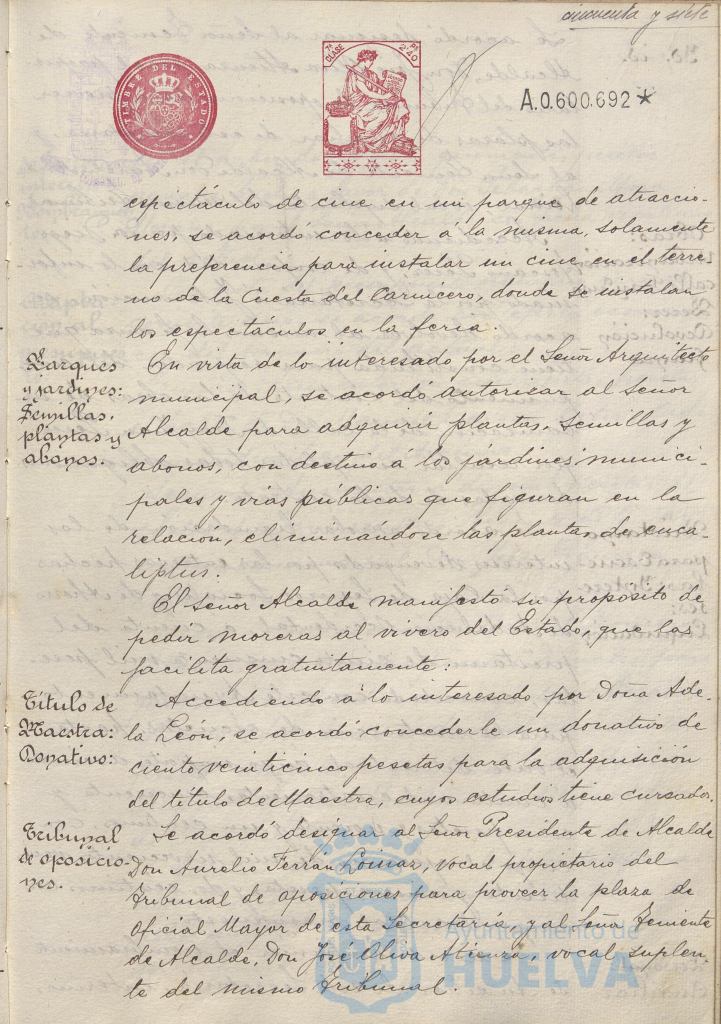 cincuenta y siete
TIMBRE DEL ESTADO
7ª CLASE
2'40 Ps
A.0.600.692 *
espectáculo de cine en un parque de atraccio-
nes, se acordó conceder á la misma, solamente
la preferencia para instalar un cine en el terre-
no de la Cuesta del Carnicero, donde se instalan
los espectáculos en la feria.
Parques
y jardines:
Semillas,
plantas y
abonos.
En vista de lo interesado por el Señor Arquitecto
municipal, se acordó autorizar al señor
Alcalde para adquirir plantas, semillas y
abonos, con destino á los jardines munici-
pales y vías públicas que figuran en la
relación, eliminándose las plantas de euca-
liptus.
El señor Alcalde manifestó su propósito de
pedir moreras al vivero del Estado, que las
facilita gratuitamente:
Título de
Maestra:
Donativo:
Accediendo á lo interesado por Doña Ade-
la León, se acordó concederle un donativo de
ciento veinticinco pesetas para la adquisición
del título de Maestra, cuyos estudios tiene cursados.
Tribunal
de oposicio-
nes.
Se acordó designar al Señor Presidente de Alcalde
Don Aurelio Ferrán, vocal propietario del
tribunal de oposiciones para proveer la plaza de
Oficial Mayor de esta Secretaría y al Señor Temente
de Alcalde, Don José Oliva Atienza, vocal suplen-
te del mismo Tribunal.
Ayuntamiento de
HUELVA